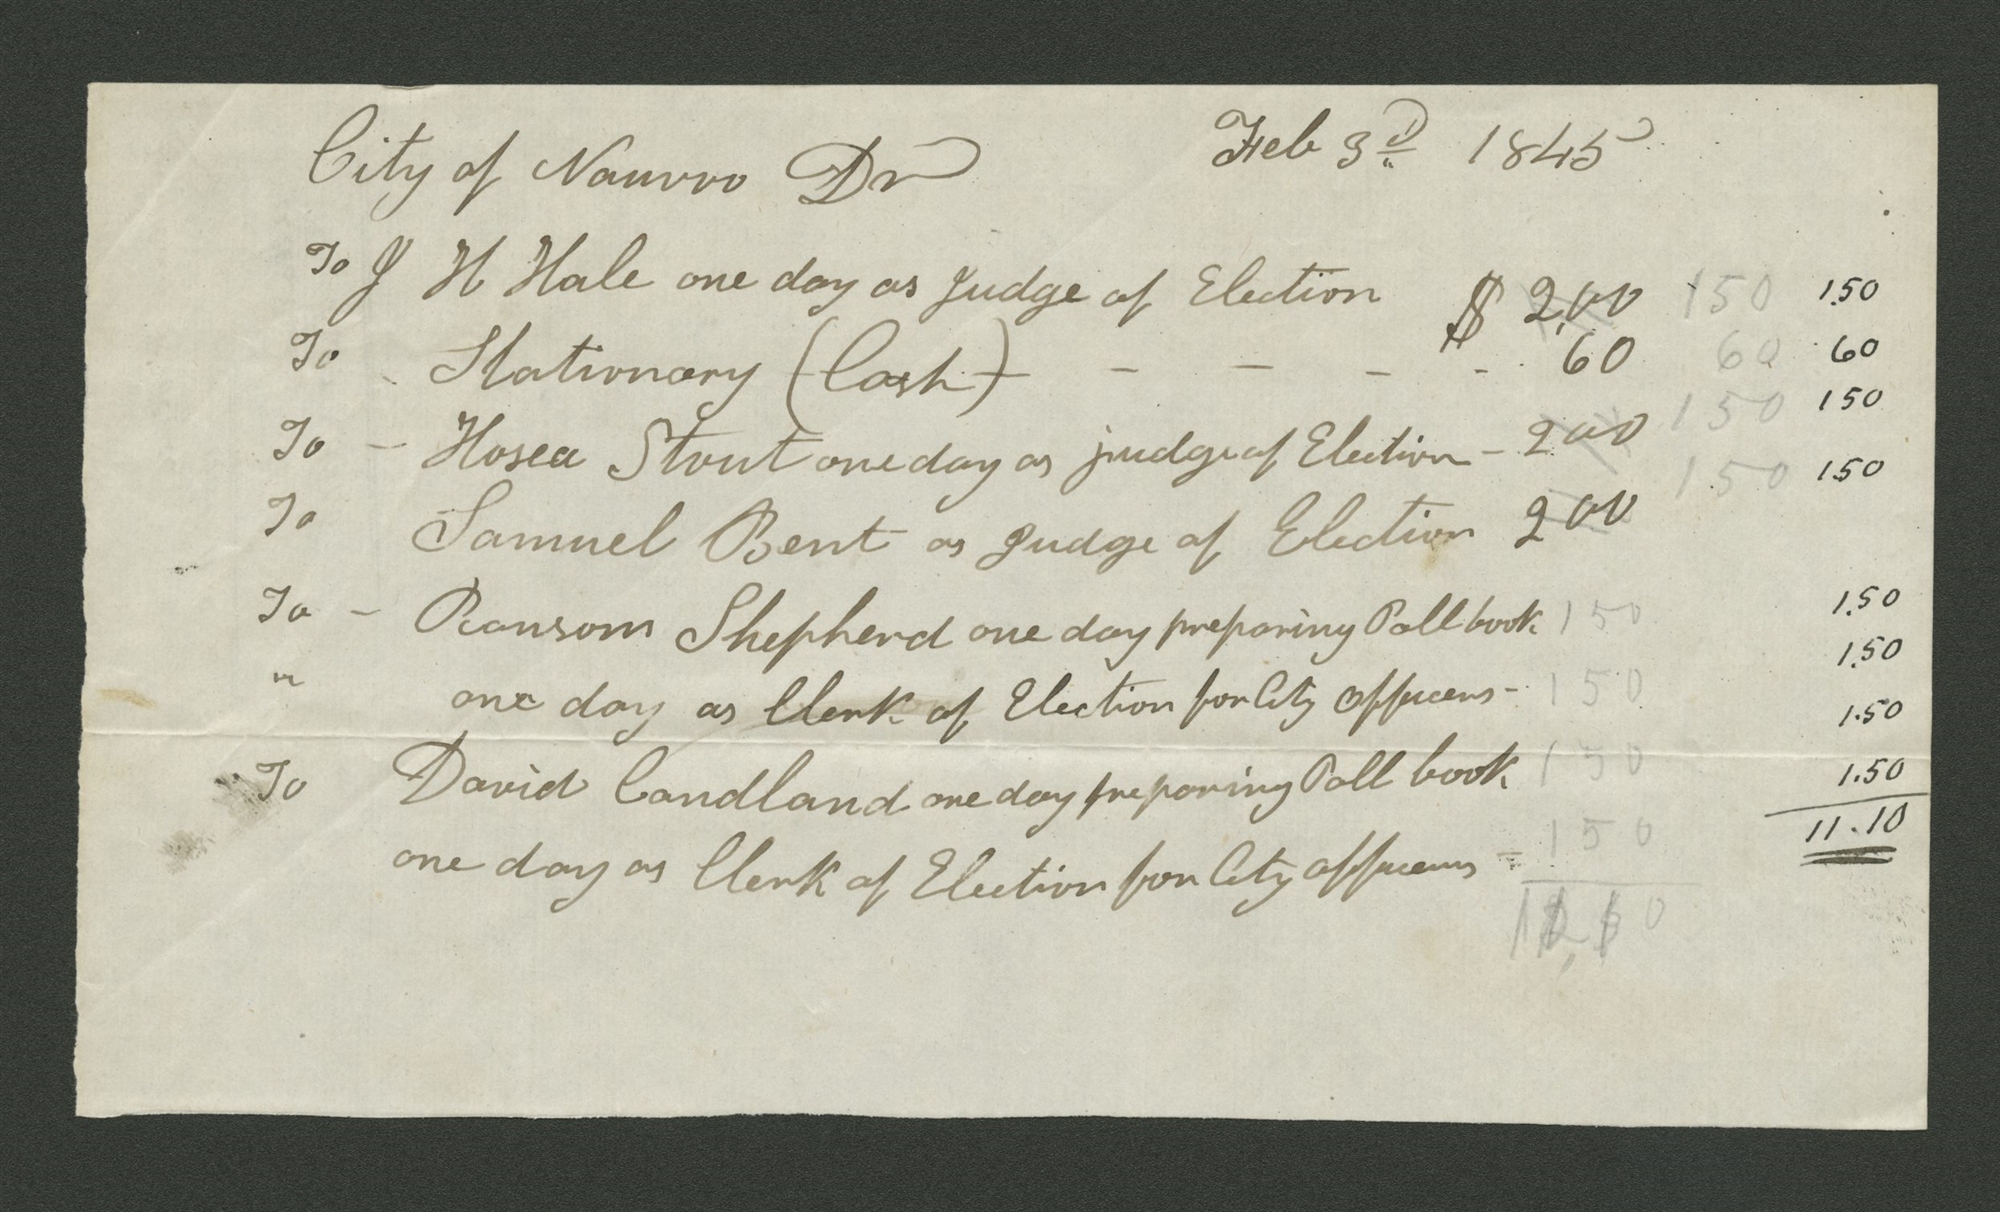 City of Nauvoo Dr Feb 3d 1845
To J H Hale one day as judge of Election $ 2,00 150 1.50
To Stationary (Cash) - - - - 60 60 60
To - Hosea Stout one day as judge of Election - 200 150 150
To Samuel Bent as judge of Election 200 150 1.50
To - Ransom Shepherd one day preparing Poll book 150 1.50
" one day as Clerk of Election for City officers - 150 1.50
To David Candland one day preparing Poll book 150 1.50
one day as Clerk of Election for City officers - 150 1.50
11.10